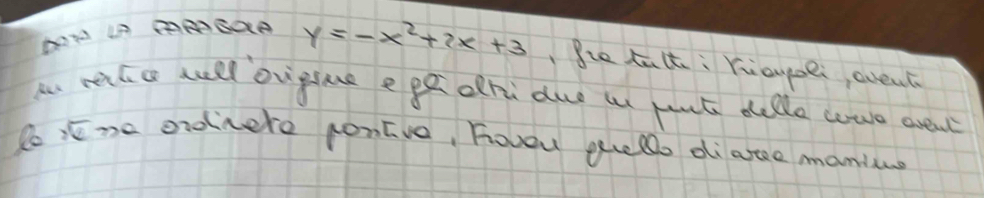 Data la parabola y = -x² + 2x + 3, fra tutti i triangoli, aventi
un vertice nell'origine e gli altri due in punti della curva aventi
la stessa ordinata positiva, trovare quello di area massima